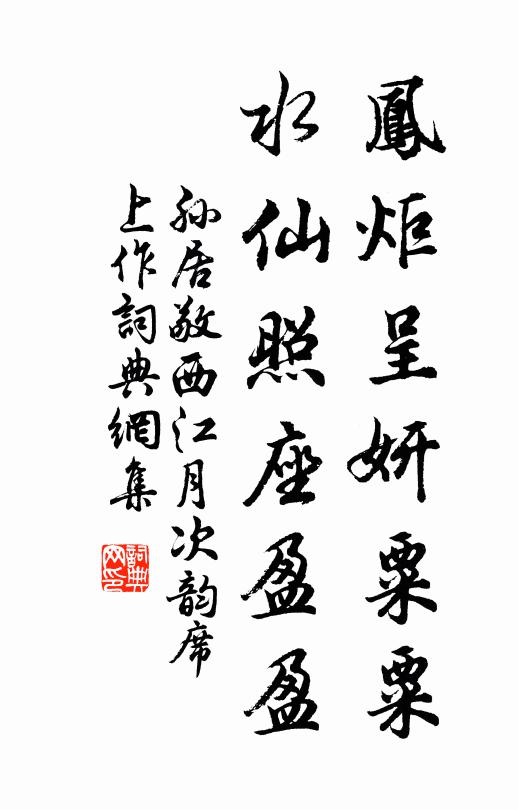 鳳炬呈妍粟粟
水仙照座盈盈
孫居敬西江月次韵席
上作詞典網集
詞典網印